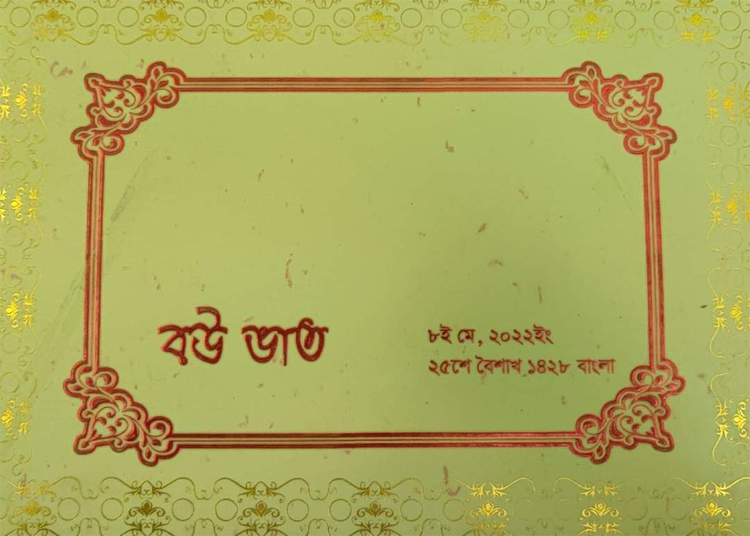 বউ ভাত
৮ই মে, ২০২২ইং
২৫শে বৈশাখ ১৪২৮ বাংলা